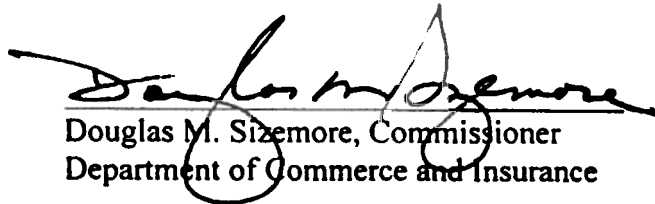 Douglas M. Sizemore
Douglas M. Sizemore, Commissioner
Department of Commerce and Insurance